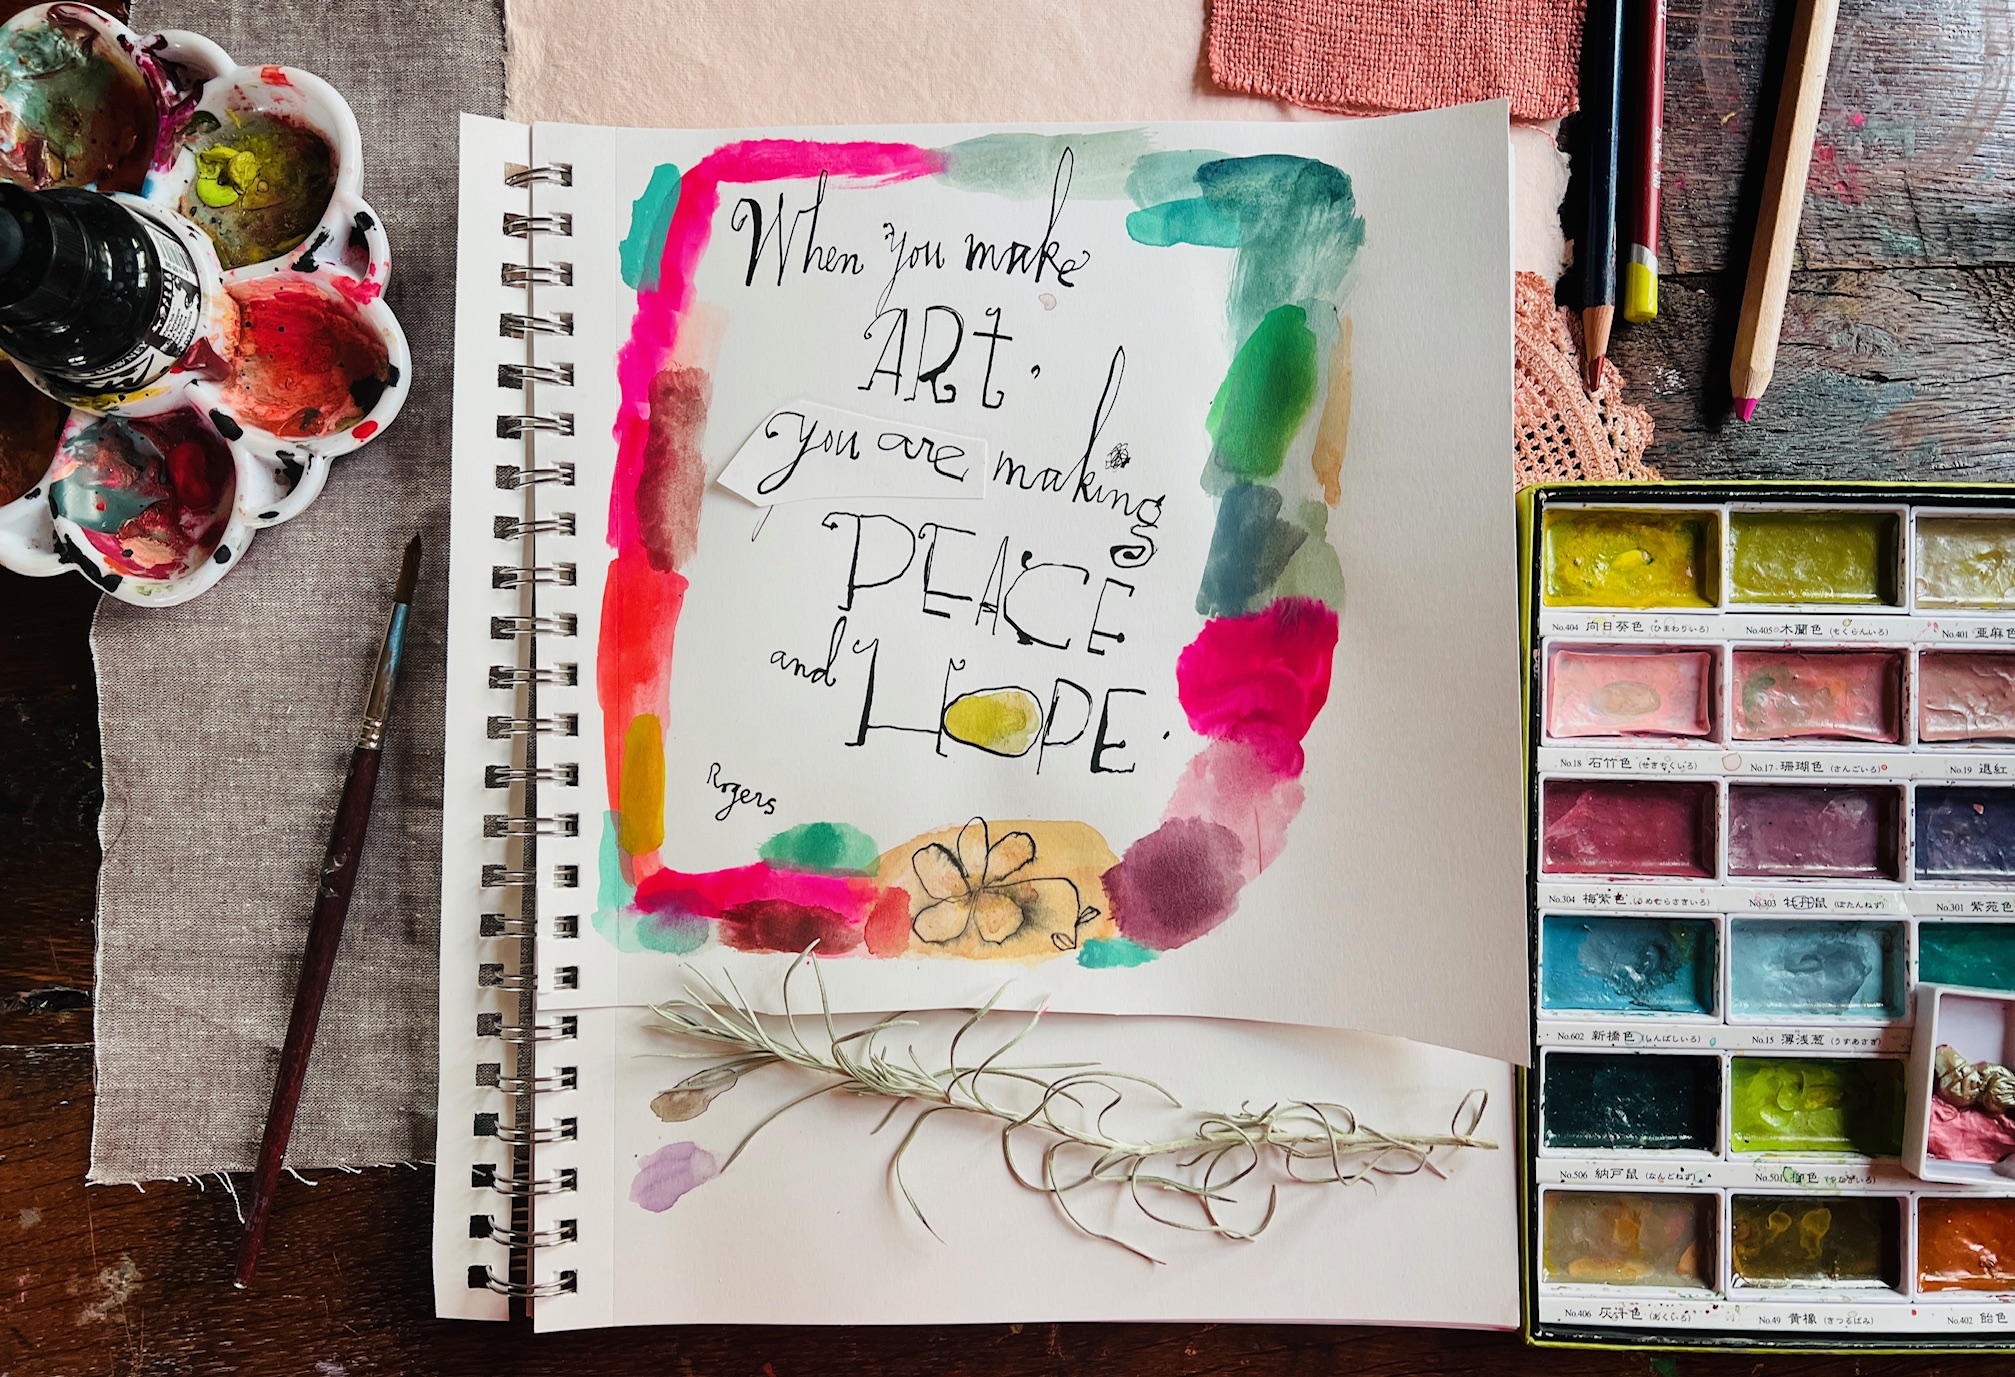 When you make
ART.
you are making
PEACE
and HOPE.
Rogers
No.404 向日葵色 (ひまわりいろ)
No.405 木蘭色 (もくらんいろ)
No.401 亜麻色
No.18 石竹色 (せきちくいろ)
No.17 珊瑚色 (さんごいろ)
No.19 退紅
No.304 梅紫色 (うめむらさきいろ)
No.303 牡丹鼠 (ぼたんねず)
No.301 紫苑色
No.602 新橋色 (しんばしいろ)
No.15 薄浅葱 (うすあさぎ)
No.506 納戸鼠 (なんどねず)
No.501
No.406 灰汁色 (あくいろ)
No.49 黄橡 (きつるばみ)
No.402 飴色